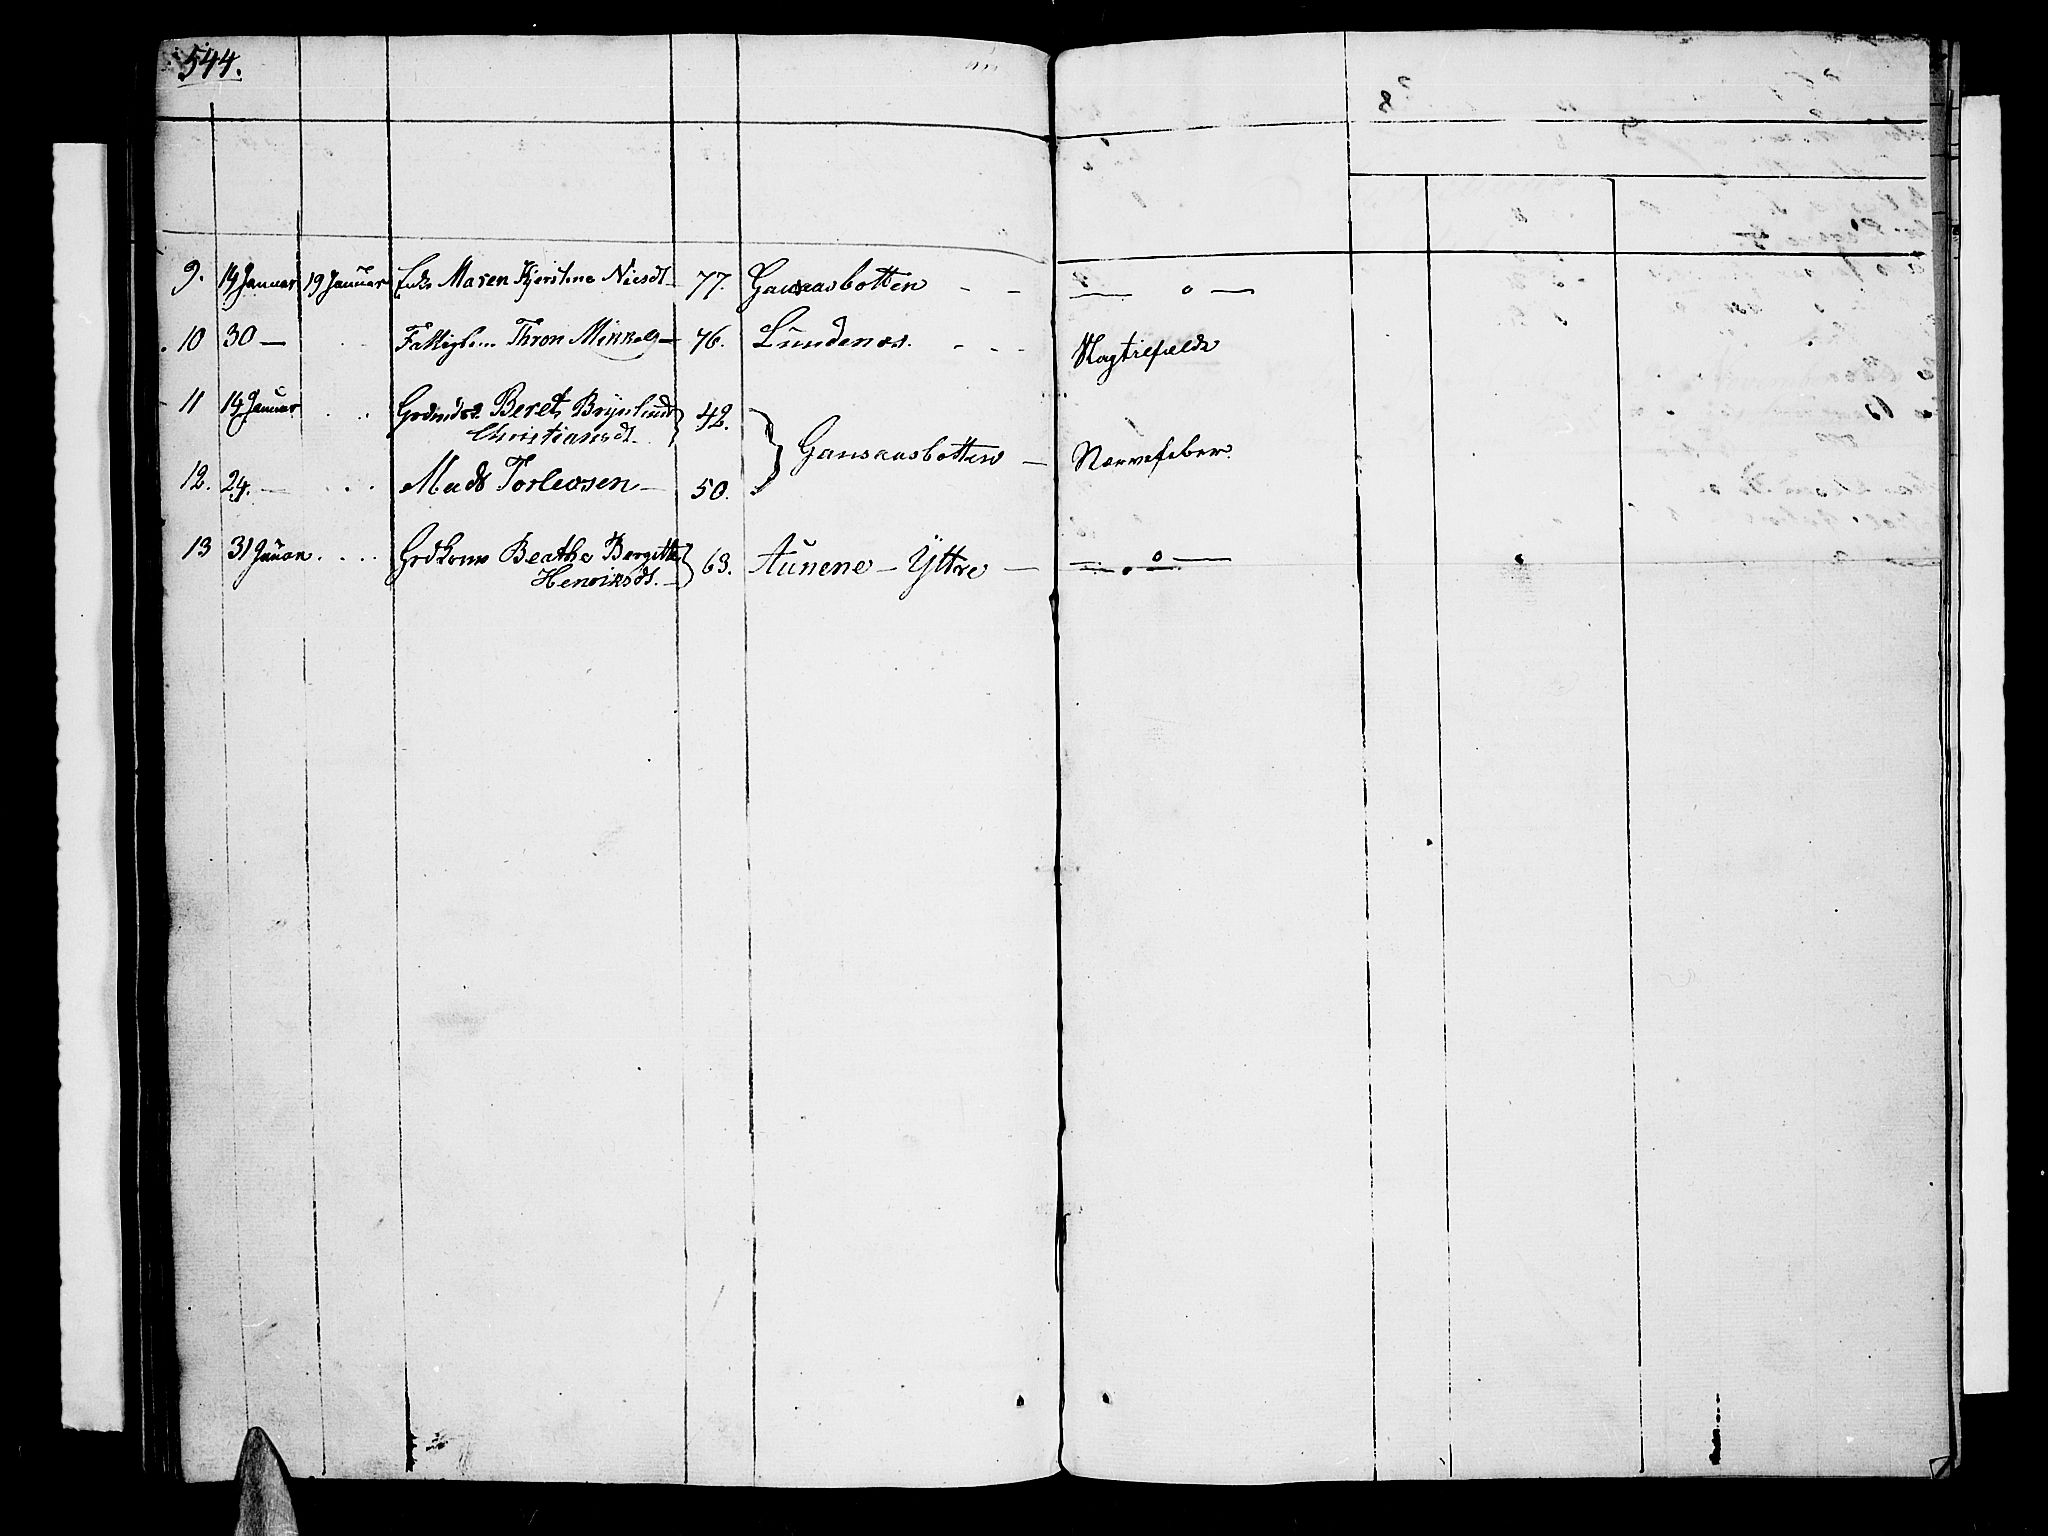 544.
9. 14 Januar 19 Januar Enke Maren Kjerstine Nilsdt. 77. Gausaasbotten - - — o —
10 30 — Fattiglem Thron Mikkels — 76. Lundenes. - - - Slagtilfælde
11 14 Januar Grdmdsk. Beret Brynhild 42.
Christiansdt. Gausaasbotten — Nærvefeber.
12. 24. — Mads Torleosen — 50.
13 31 Januar Grdkone Beathe Bergitte 63. Aunene - Yttre — — o —
Henriksdt. —